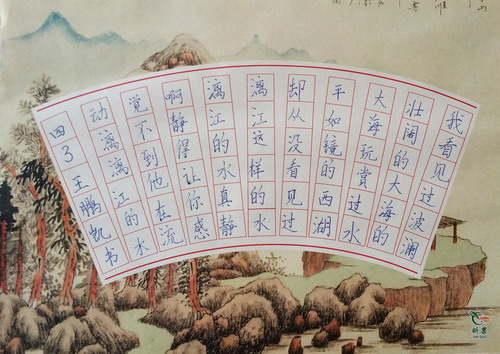 我看见过波澜
壮阔的大海的
大海玩赏过水
平如镜的西湖
却从没看见过
漓江这样的水
漓江的水真静
啊静得让你感
觉不到他在流
动漓漓江的水
四3王鹏凯书